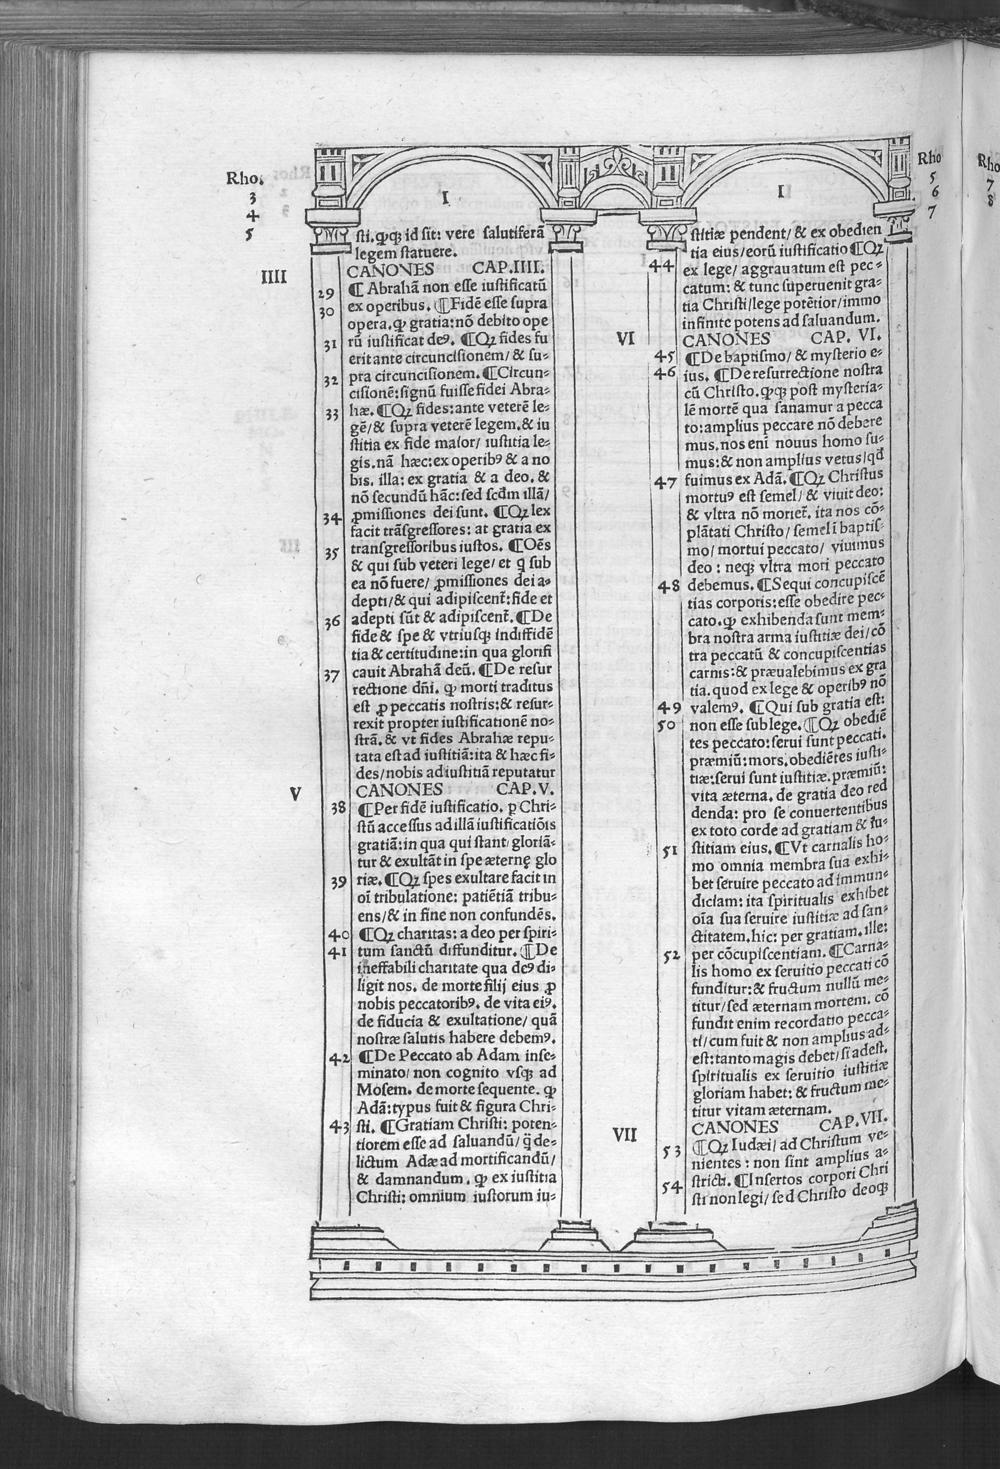 Rho.
3
4
5
I
I
Rho
5
6
7
Rho
7
8
sti. ꝙꝗ id sit: vere salutiferā
legem statuere.
IIII
CANONES CAP.IIII.
29 ¶ Abrahā non esse iustificatū
30 ex operibus. ¶ Fidē esse supra
opera. ꝙ gratia: nō debito ope
31 rū iustificat deꝰ. ¶ Qꝫ fides fu
erit ante circuncisionem/ & su⸗
32 pra circuncisionem. ¶ Circun⸗
cisionē: signū fuisse fidei Abra⸗
33 hæ. ¶ Qꝫ fides: ante veterē le⸗
gē/ & supra veterē legem. & iu
stitia ex fide maior/ iustitia le⸗
gis. nā hæc: ex operibꝰ & a no
bis. illa: ex gratia & a deo. &
nō secundū hāc: sed scd̄m illā/
34 ꝓmissiones dei sunt. ¶ Qꝫ lex
facit trāsgressores: at gratia ex
35 transgressoribus iustos. ¶ Oēs
& qui sub veteri lege/ et q̄ sub
ea nō fuere/ ꝓmissiones dei a⸗
depti/ & qui adipiscent̄: fide et
36 adepti sūt & adipiscent̄. ¶ De
fide & spe & vtriusqꝫ indiffidē
tia & certitudine: in qua glorifi
37 cauit Abrahā deū. ¶ De resur
rectione dn̄i. ꝙ morti traditus
est ꝓ peccatis nostris: & resur⸗
rexit propter iustificationē no⸗
strā. & vt fides Abrahæ repu⸗
tata est ad iustitiā: ita & hæc fi⸗
des/ nobis ad iustitiā reputatur
V
CANONES CAP.V.
38 ¶ Per fidē iustificatio. ꝑ Chri⸗
stū accessus ad illā iustificatiōis
gratiā: in qua qui stant/ gloriā⸗
tur & exultāt in spe æternę glo
39 riæ. ¶ Qꝫ spes exultare facit in
oī tribulatione: patiētiā tribu⸗
ens/ & in fine non confundēs.
40 ¶ Qꝫ charitas: a deo per spiri⸗
41 tum sanctū diffunditur. ¶ De
ineffabili charitate qua deꝰ di⸗
ligit nos. de morte filij eius ꝓ
nobis peccatoribꝰ. de vita eiꝰ.
de fiducia & exultatione/ quā
nostræ salutis habere debemꝰ.
42 ¶ De Peccato ab Adam inse⸗
minato/ non cognito vsqꝫ ad
Mosem. de morte sequente. ꝙ
Adā: typus fuit & figura Chri⸗
43 sti. ¶ Gratiam Christi: poten⸗
tiorem esse ad saluandū/ q̄ de⸗
lictum Adæ ad mortificandū/
& damnandum. ꝙ ex iustitia
Christi: omnium iustorum iu⸗
stitiæ pendent/ & ex obedien
tia eius/ eorū iustificatio ¶ Qꝫ
44 ex lege/ aggrauatum est pec⸗
catum: & tunc superuenit gra⸗
tia Christi/ lege potētior/ immo
infinite potens ad saluandum.
VI
CANONES CAP. VI.
45 ¶ De baptismo/ & mysterio e⸗
46 ius. ¶ De resurrectione nostra
cū Christo. ꝙꝗ post mysteria⸗
lē mortē qua sanamur a pecca
to: amplius peccare nō debere
mus. nos enī nouus homo su⸗
mus: & non amplius vetus/ qd̄
47 fuimus ex Adā. ¶ Qꝫ Christus
mortuꝰ est semel/ & viuit deo:
& vltra nō moriet̄. ita nos cō⸗
plātati Christo/ semel ī baptis⸗
mo/ mortui peccato/ viuimus
deo: neqꝫ vltra mori peccato
48 debemus. ¶ Sequi concupiscē
tias corporis: esse obedire pec⸗
cato. ꝙ exhibenda sunt mem⸗
bra nostra arma iustitiæ dei/ cō
tra peccatū & concupiscentias
carnis: & præualebimus ex gra
tia. quod ex lege & operibꝰ nō
49 valemꝰ. ¶ Qui sub gratia est:
50 non esse sub lege. ¶ Qꝫ obediē
tes peccato: serui sunt peccati.
præmiū: mors. obediētes iusti⸗
tiæ: serui sunt iustitiæ. præmiū:
vita æterna. de gratia deo red
denda: pro se conuertentibus
ex toto corde ad gratiam & iu⸗
51 stitiam eius. ¶ Vt carnalis ho⸗
mo omnia membra sua exhi⸗
bet seruire peccato ad immun⸗
diciam: ita spiritualis exhibet
oīa sua seruire iustitiæ ad san⸗
ctitatem. hic: per gratiam. ille:
52 per cōcupiscentiam. ¶ Carna⸗
lis homo ex seruitio peccati cō
funditur: & fructum nullū me⸗
titur/ sed æternam mortem. cō
fundit enim recordatio pecca⸗
ti/ cum fuit & non amplius ad⸗
est: tanto magis debet/ si adest.
spiritualis ex seruitio iustitiæ
gloriam habet: & fructum me⸗
titur vitam æternam.
VII
CANONES CAP.VII.
53 ¶ Qꝫ Iudæi/ ad Christum ve⸗
nientes: non sint amplius a⸗
54 stricti. ¶ Insertos corpori Chri
sti non legi/ sed Christo deoqꝫ